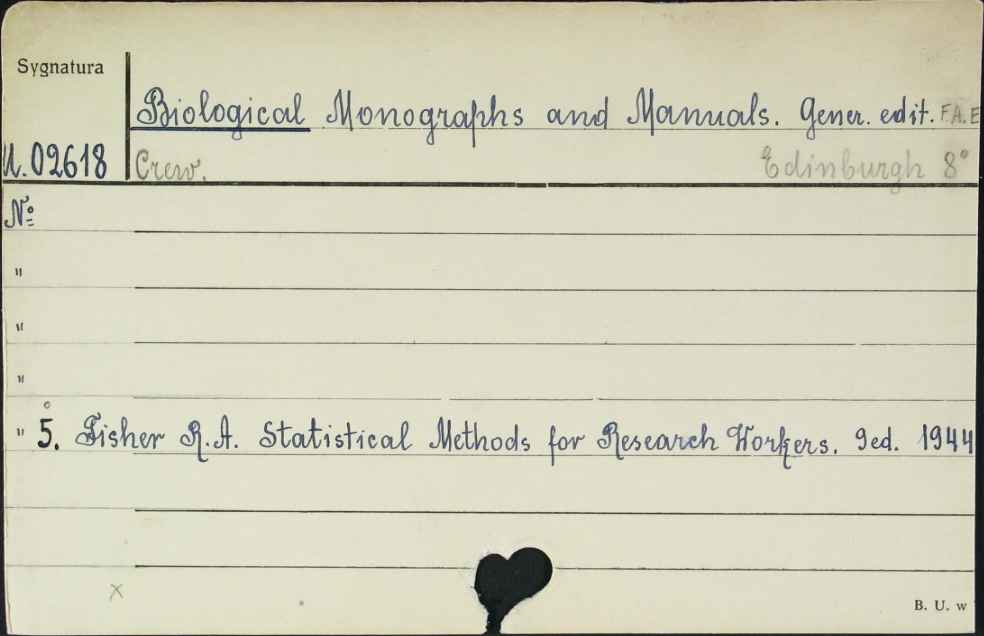 Sygnatura
Biological Monographs and Manuals. Gener. edit. F.A.E
U.02618 Crew. Edinburgh 8°
№
"
"
"
" 5. Fisher R.A. Statistical Methods for Research Workers. 9ed. 1944
x
B. U. w